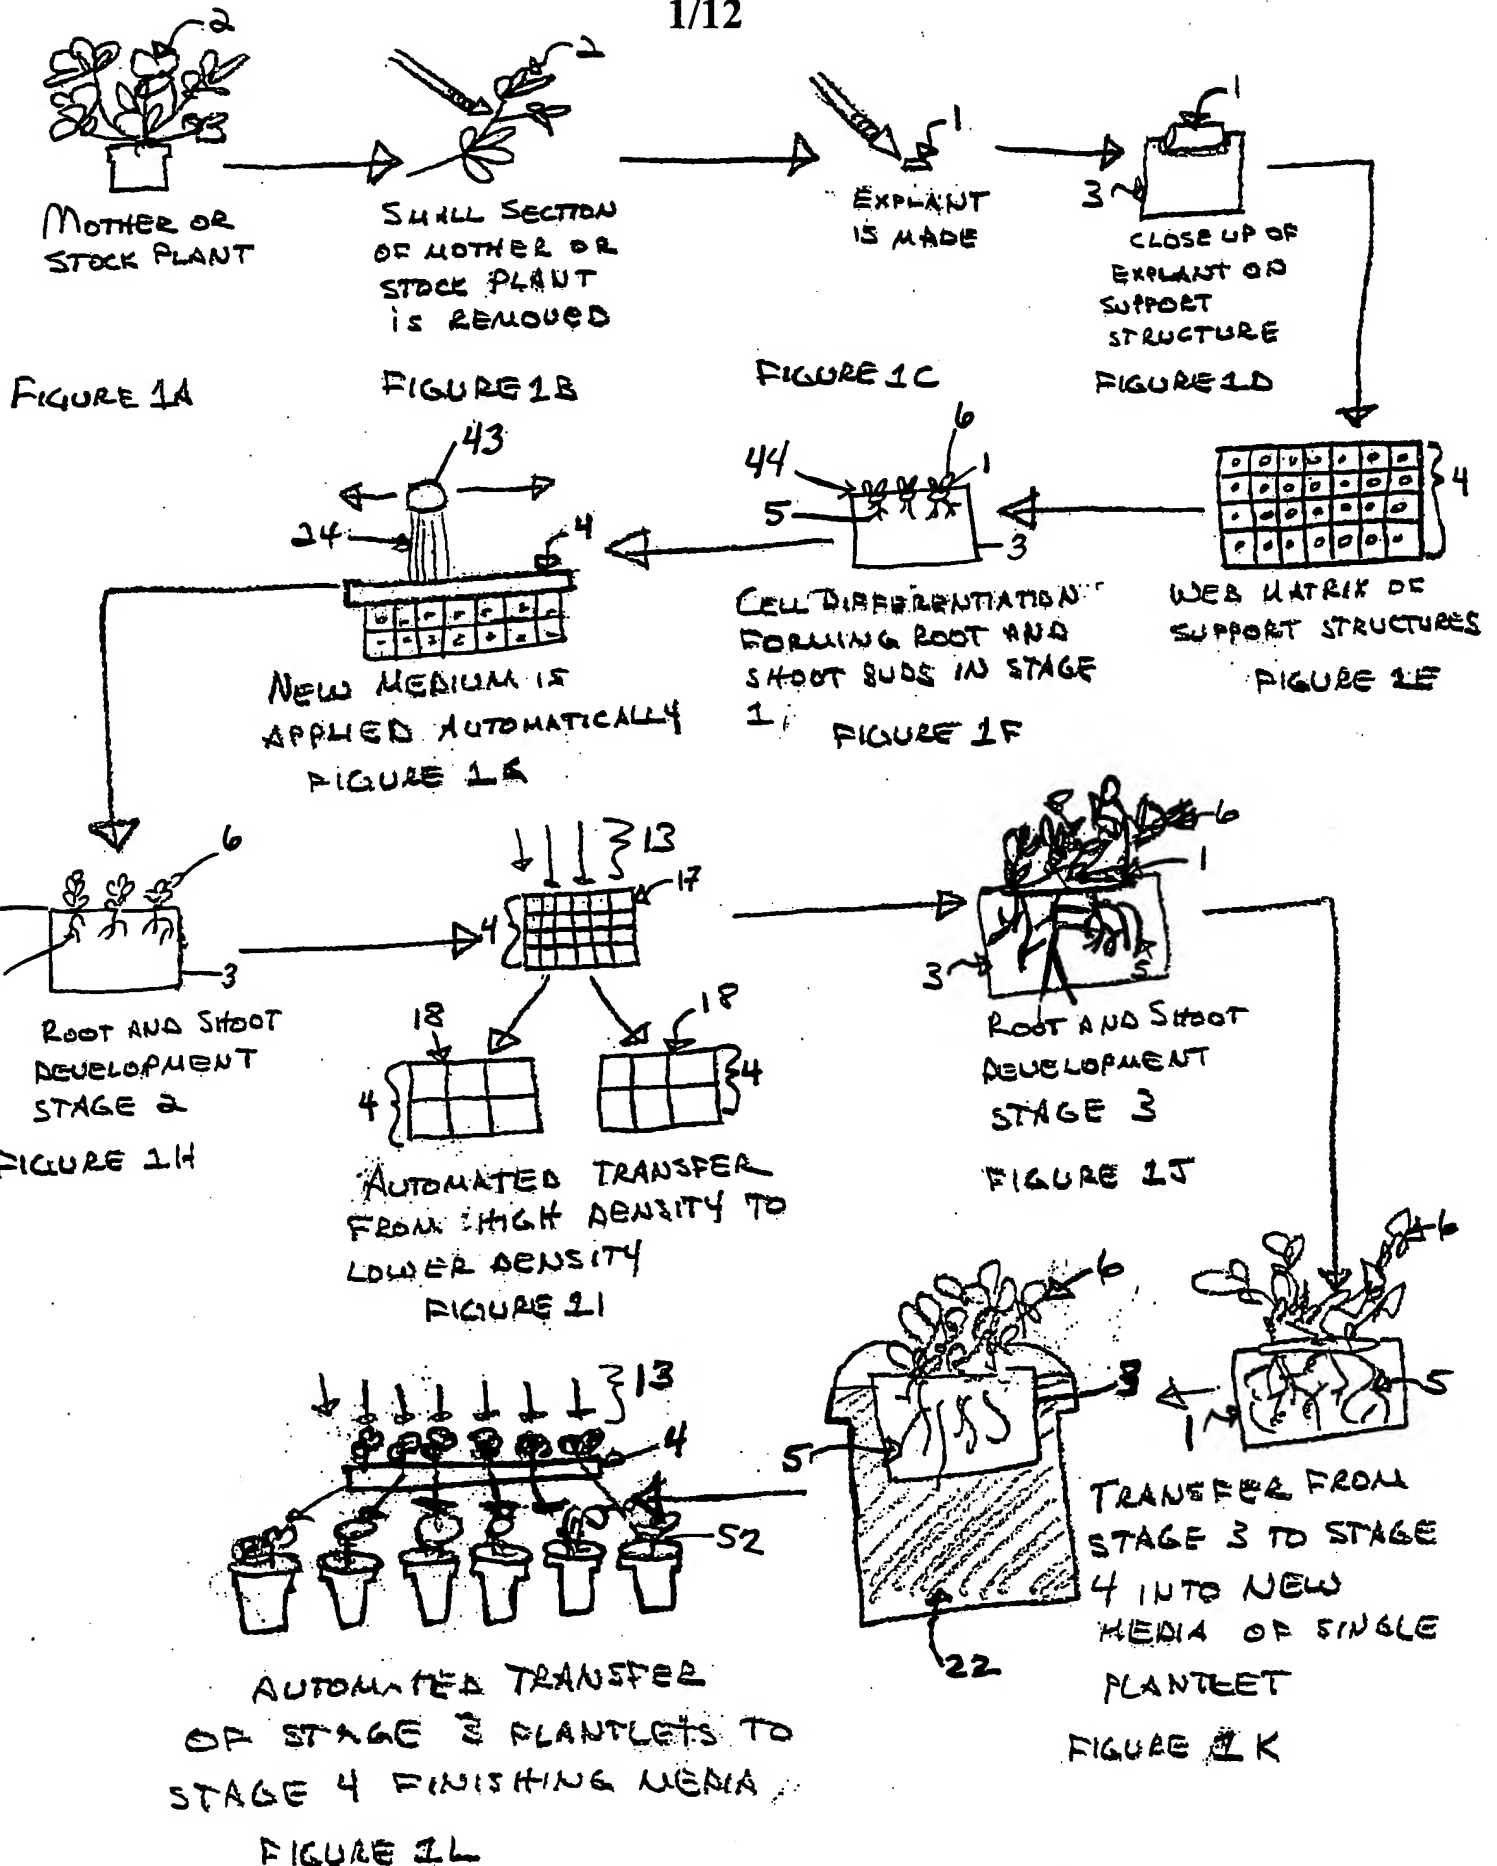 1/12
2
MOTHER OR
STOCK PLANT
FIGURE 1A
2
SMALL SECTION
OF MOTHER OR
STOCK PLANT
is REMOVED
FIGURE 1B
1
EXPLANT
IS MADE
FIGURE 1C
1
3
CLOSE UP OF
EXPLANT ON
SUPPORT
STRUCTURE
FIGURE 1D
4
WEB MATRIX OF
SUPPORT STRUCTURES
FIGURE 1E
6
44
1
5
3
CELL DIFFERENTIATION
FORMING ROOT AND
SHOOT BUDS IN STAGE
1,
FIGURE 1F
43
24
4
NEW MEDIUM IS
APPLIED AUTOMATICALLY
FIGURE 1G
6
3
ROOT AND SHOOT
DEVELOPMENT
STAGE 2
FIGURE 1H
13
17
4
18
18
4
4
AUTOMATED TRANSFER
FROM HIGH DENSITY TO
LOWER DENSITY
FIGURE 1I
6
1
3
5
ROOT AND SHOOT
DEVELOPMENT
STAGE 3
FIGURE 1J
6
5
1
6
3
5
22
TRANSFER FROM
STAGE 3 TO STAGE
4 INTO NEW
MEDIA OF SINGLE
PLANTLET
FIGURE 1K
13
4
52
AUTOMATED TRANSFER
OF STAGE 3 PLANTLETS TO
STAGE 4 FINISHING MEDIA
FIGURE 1L